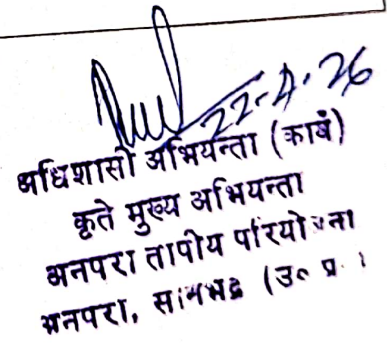 22-4-26
अधिशासी अभियन्ता (कार्य)
कृते मुख्य अभियन्ता
अनपरा तापीय परियोजना
अनपरा, सोनभद्र (उ० प्र०)